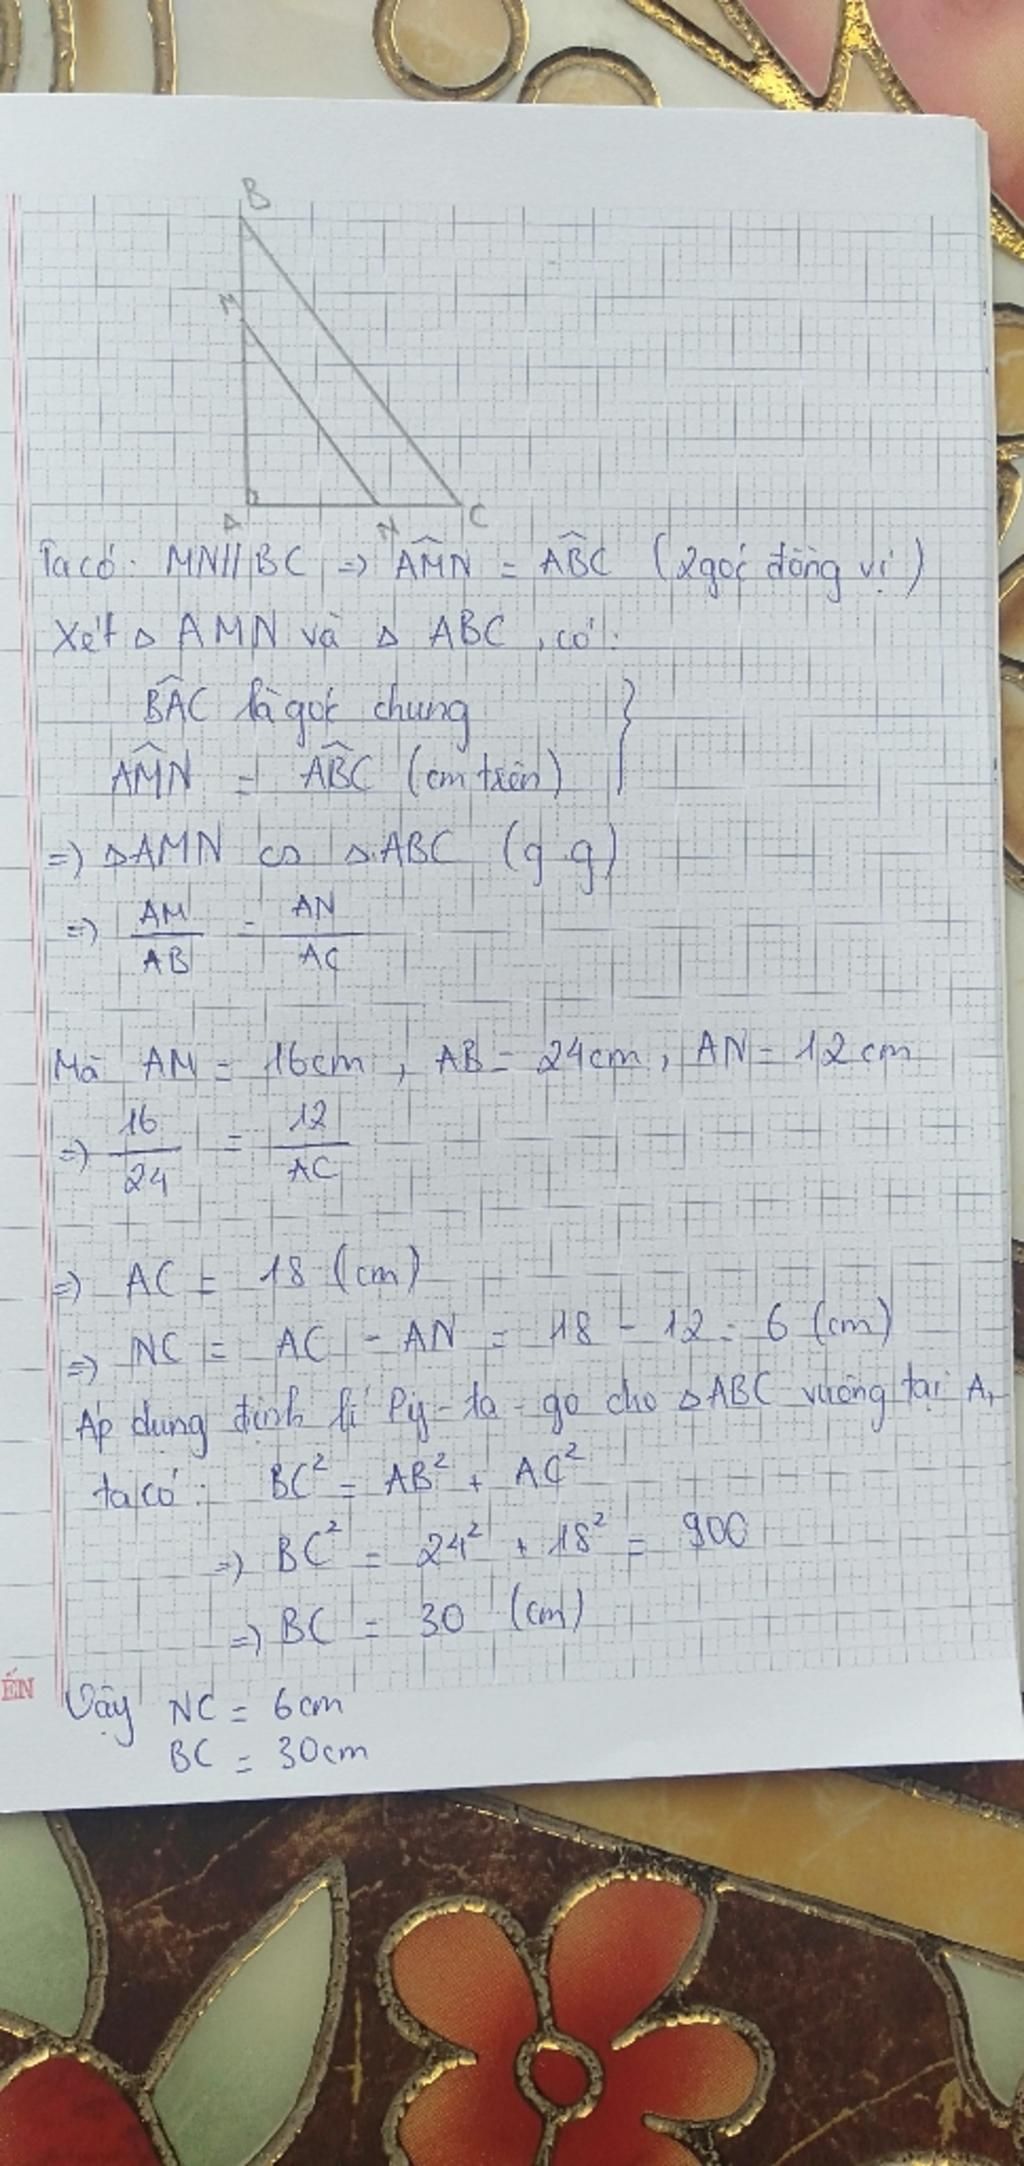 B
M
A N C
Ta có: MN//BC => AMN̂ = ABĈ (2 góc đồng vị)
Xét △ AMN và △ ABC, có:
BAĈ là góc chung
AMN̂ = ABĈ (cm trên) }
=> △AMN ∽ △ABC (g g)
=> AM/AB = AN/AC
Mà AM = 16cm, AB = 24cm, AN = 12cm
=> 16/24 = 12/AC
=> AC = 18 (cm)
=> NC = AC - AN = 18 - 12 = 6 (cm)
Áp dụng định lí Py-ta-go cho △ABC vuông tại A,
ta có: BC² = AB² + AC²
=> BC² = 24² + 18² = 900
=> BC = 30 (cm)
ẾN
Vậy NC = 6cm
BC = 30cm